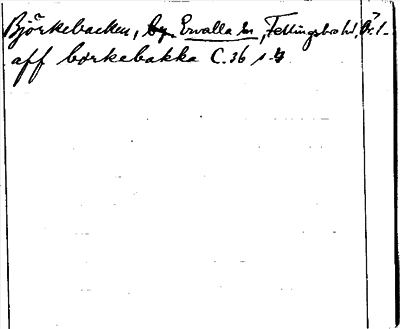 Björkebacken, by. Ervalla sn, Fellingsbro hd, Ör. l.
aff borkebakka C. 36 s. 4